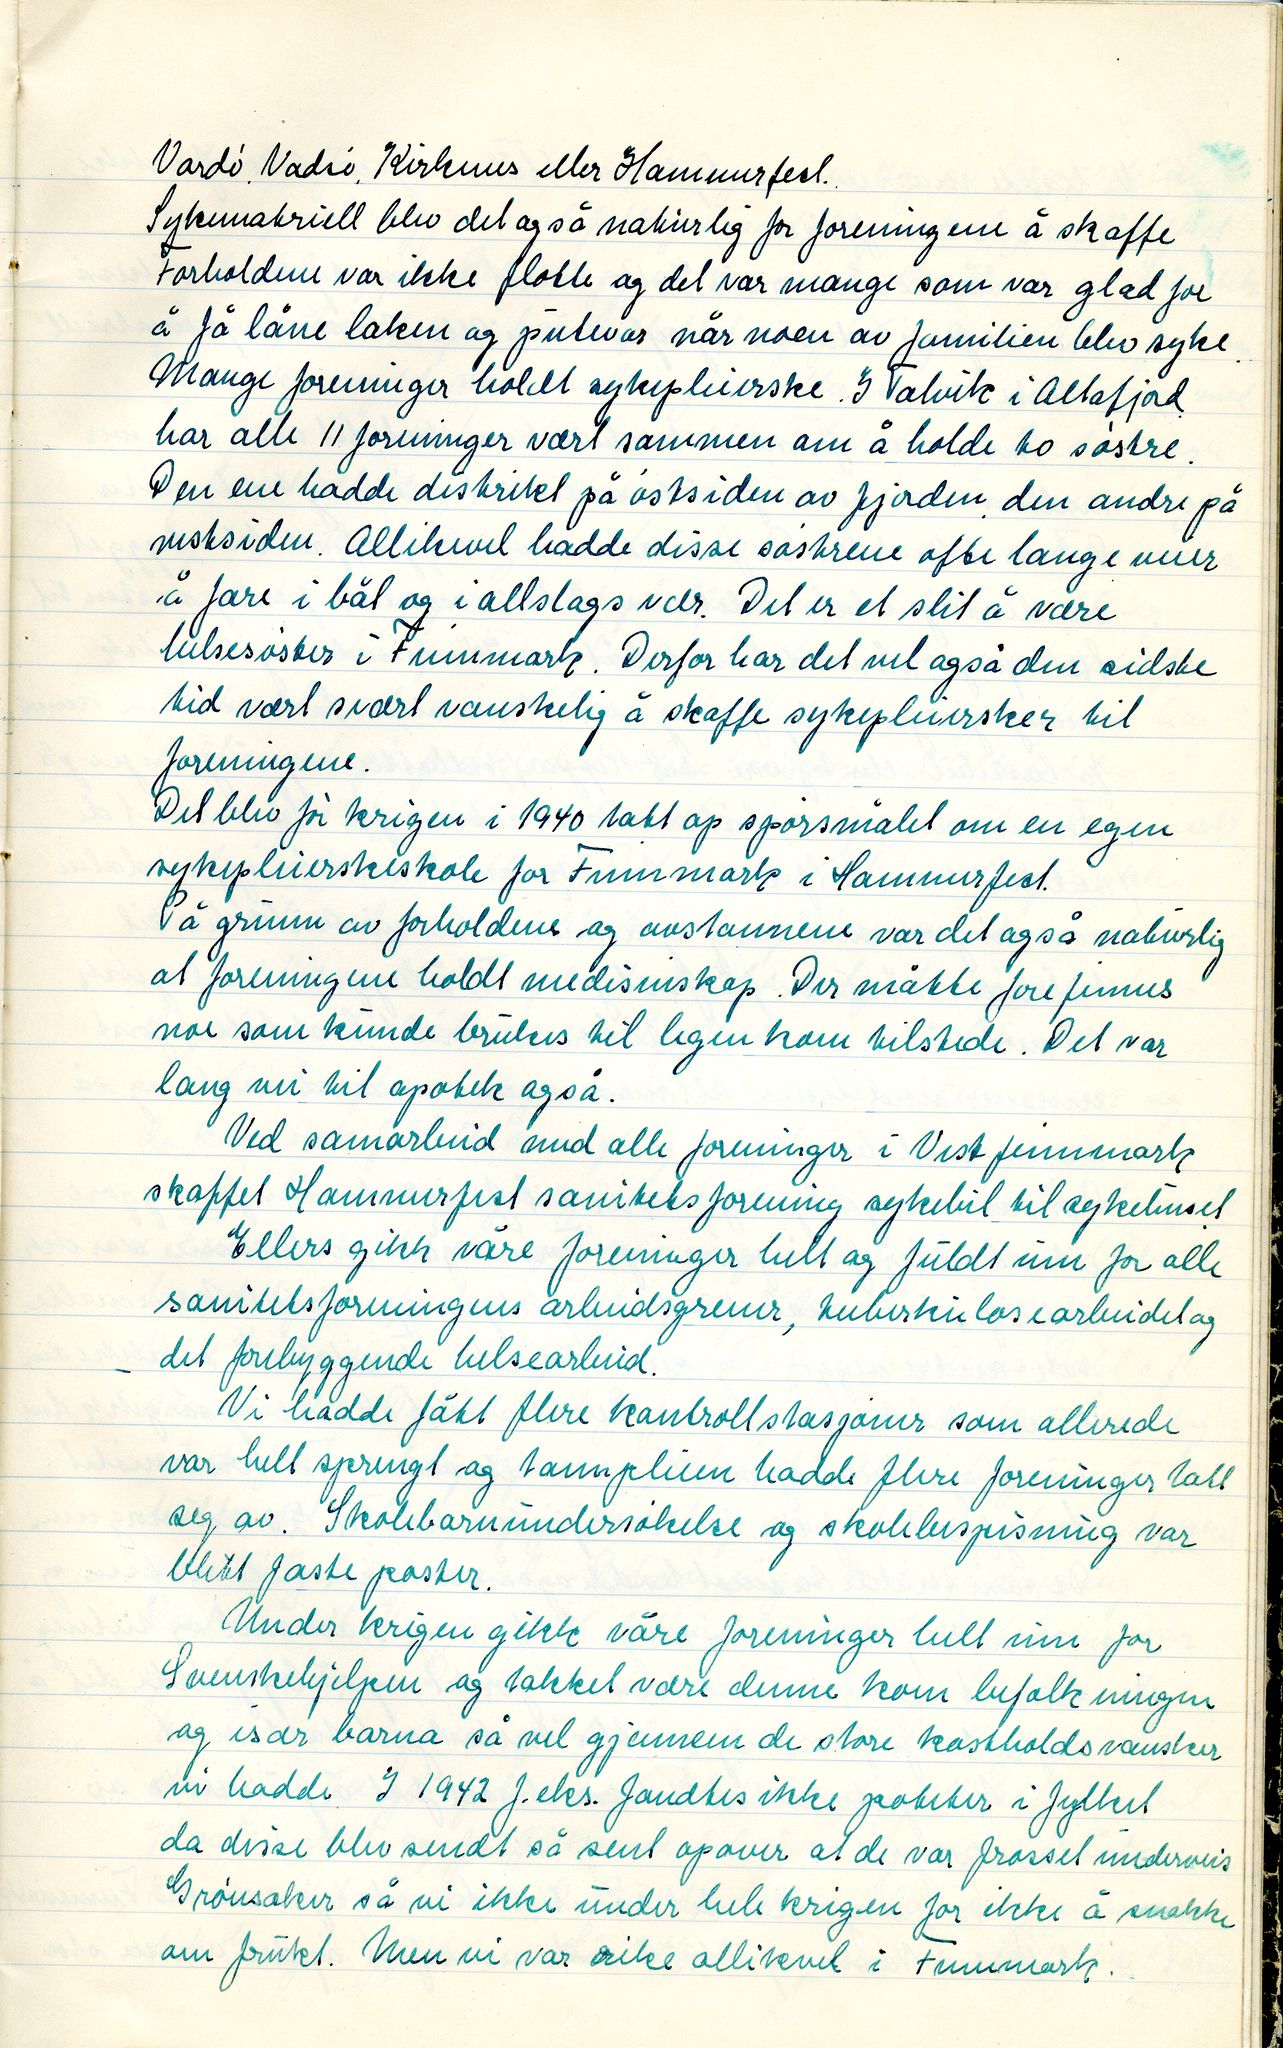 Vardö, Vadsö, Kirkenes eller Hammerfest.
Sykemateriell blev det også naturlig for foreningene å skaffe
Forholdene var ikke flotte og det var mange som var glad for
å få låne laken og putevar når noen av familien blev syke.
Mange foreninger holdt sykepleierske. I Talvik i Altafjord
har alle 11 foreninger vært sammen om å holde to söstre.
Den ene hadde distrikt på östsiden av fjorden, den andre på
vestsiden. Allikevel hadde disse söstrene ofte lange veier
å fare i båt og i allslags vær. Det er et slit å være
helsesöster i Finnmark. Derfor har det vel også den sidste
tid vært svært vanskelig å skaffe sykepleiersker til
foreningene.
Det blev för krigen i 1940 tatt op spörsmålet om en egen
sykepleierskeskole for Finnmark i Hammerfest.
På grunn av forholdene og avstannene var det også naturlig
at foreningene holdt medisinskap. Der måtte forefinnes
noe som kunde brukes til legen kom tilstede. Det var
lang vei til apotek også.
Ved samarbeid med alle foreninger i Vestfinnmark
skaffet Hammerfest sanitetsforening sykebil til sykehuset
Ellers gikk våre foreninger helt og fuldt inn for alle
sanitetsforeningens arbeidsgrener, tuberkulosearbeidet og
det forebyggende helsearbeid.
Vi hadde fått flere kontrollstasjoner som allerede
var helt sprengt og tannpleien hadde flere foreninger tatt
seg av. Skolebarnundersökelse og skolebespisning var
blitt faste poster.
Under krigen gikk våre foreninger helt inn for
Svenskehjelpen og takket være denne kom befolkningen
og især barna så vel gjennem de store kostholdsvansker
vi hadde. I 1942 f. eks. fandtes ikke poteter i fylket
da disse blev sendt så sent opover at de var frosset underveis
Grönsaker så vi ikke under hele krigen for ikke å snakke
om frukt. Men vi var rike allikevel i Finnmark.